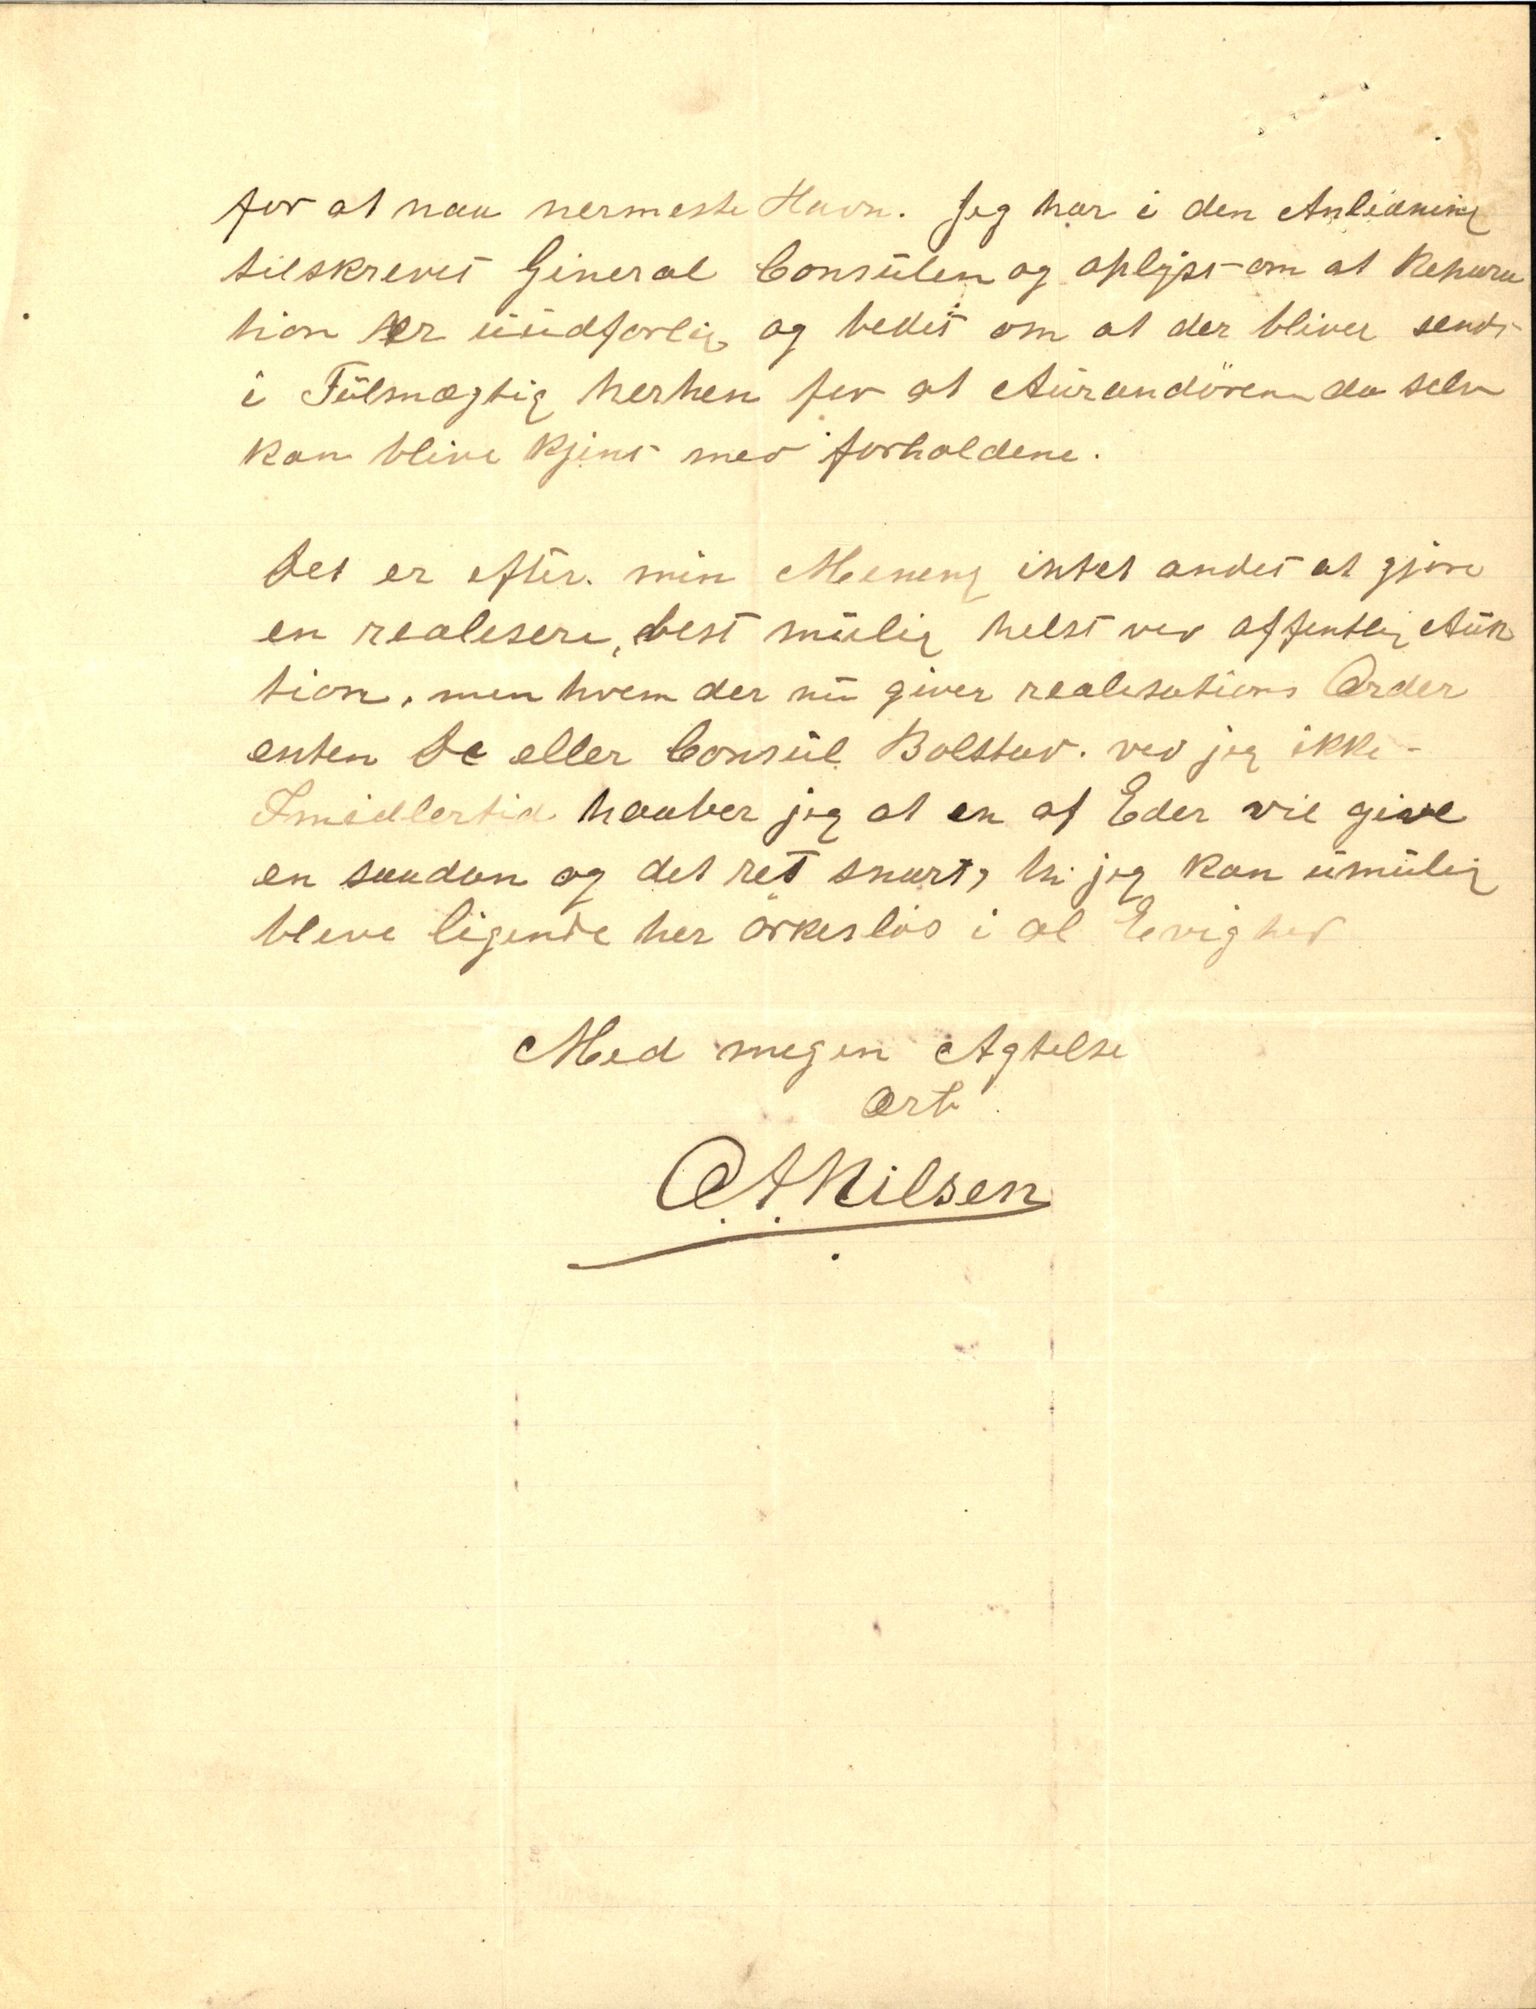 for at naa nermeste Havn. Jeg har i den Anledning
tilskrevet General Consulen og oplyst om at Repara
tion her uudforlig og bedet om at der bliver sendt
i Fulmægtig herhen for at Aurandören da selv
kan blive kjent med forholdene.
Det er efter min Mening intet andet at gjøre
en realisere, best mulig helst ved offentlig Auk
tion, men hvem der nu giver realisations Order
enten De eller Consul Bolstad. ved jeg ikke-
Imidlertid haaber jeg at en af Eder vil give
en saadan og det ret snart, thi jeg kan umulig
blive ligende her örkeslös i al Evighed
Med megen Agtelse
Ærb
C.A.Nilsen